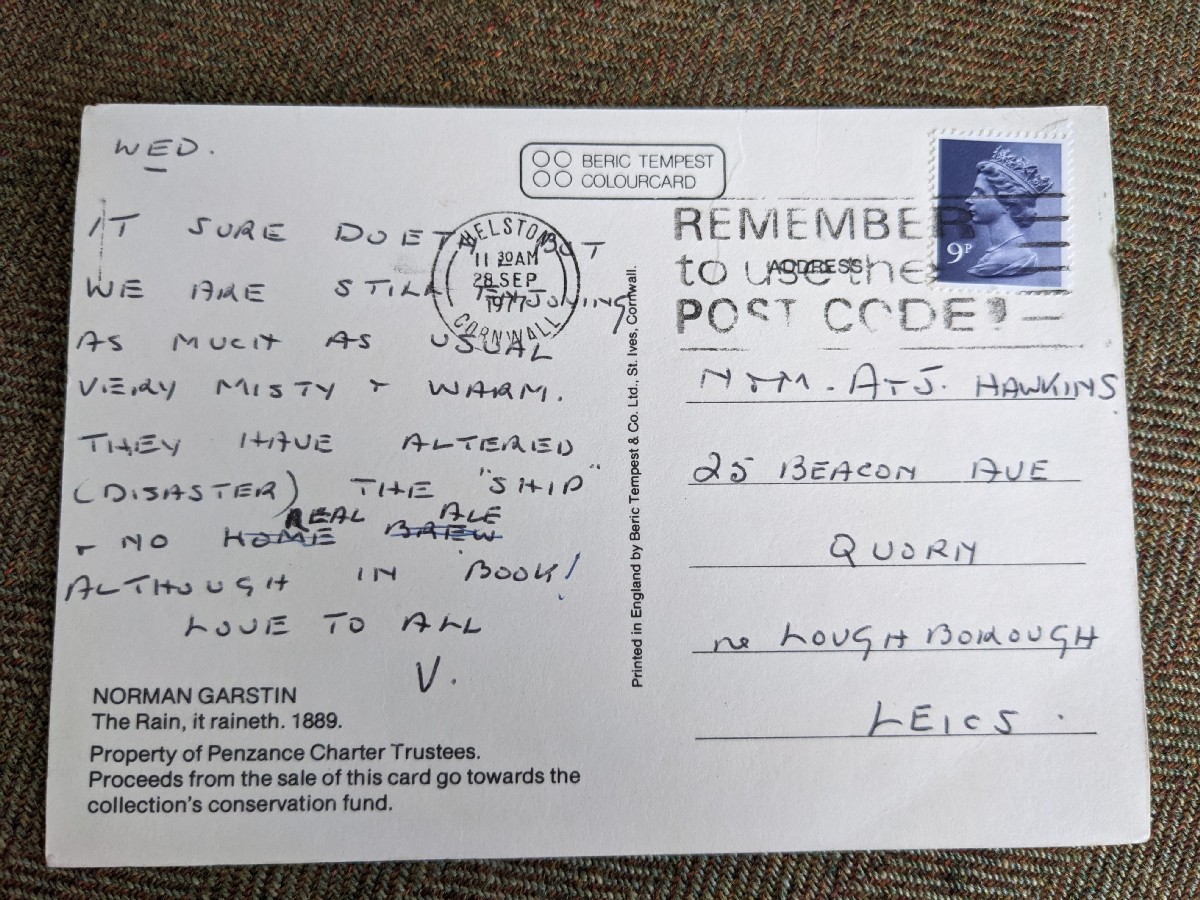 WED.
IT SURE DOET BUT
WE ARE STILL ENJOYING
AS MUCH AS USUAL
VERY MISTY + WARM.
THEY HAVE ALTERED
(DISASTER) THE "SHIP"
REAL ALE
+ NO HOME BREW
ALTHOUGH IN BOOK!
LOVE TO ALL
V.
NORMAN GARSTIN
The Rain, it raineth. 1889.
Property of Penzance Charter Trustees.
Proceeds from the sale of this card go towards the
collection's conservation fund.
BERIC TEMPEST
COLOURCARD
HELSTON
11 30AM
28 SEP
1977
CORNWALL
Printed in England by Beric Tempest & Co. Ltd., St. Ives, Cornwall.
REMEMBER
to use the
POST CODE
ADDRESS
9P
N + M. A + J. HAWKINS
25 BEACON AVE
QUORN
nr LOUGHBOROUGH
LEICS.